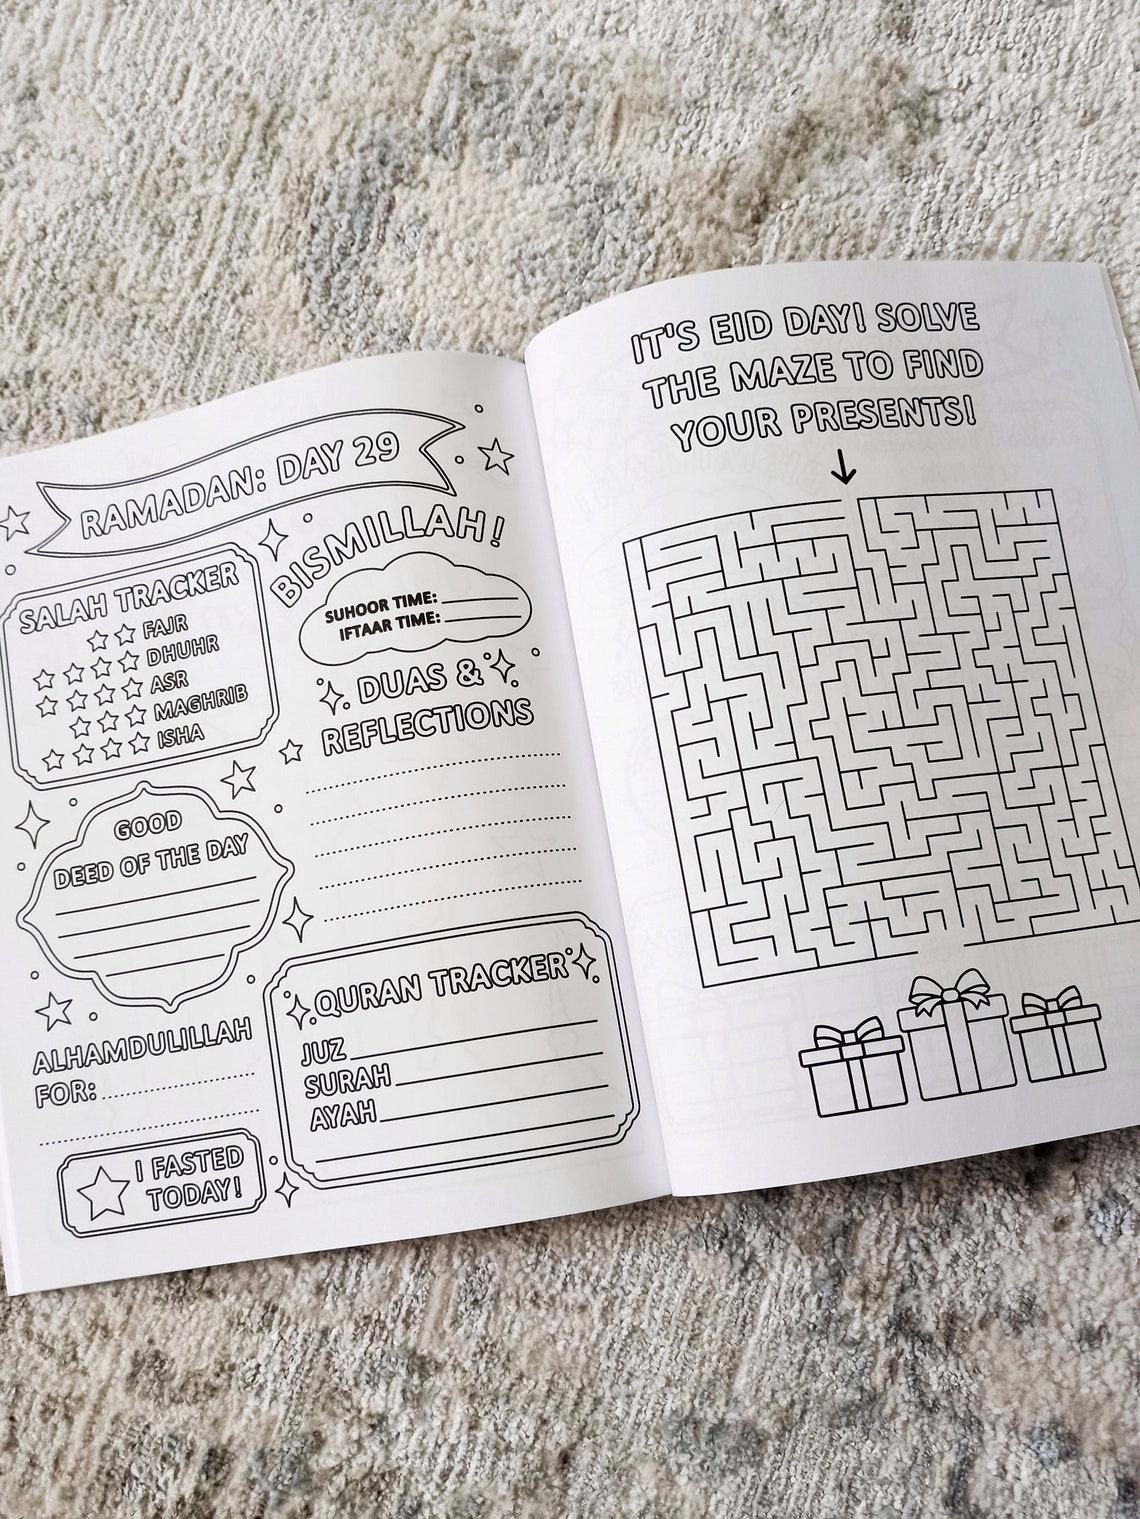 RAMADAN: DAY 29
SALAH TRACKER
FAJR
DHUHR
ASR
MAGHRIB
ISHA
BISMILLAH!
SUHOOR TIME:
IFTAAR TIME:
DUAS &
REFLECTIONS
GOOD
DEED OF THE DAY
ALHAMDULILLAH
FOR:
I FASTED
TODAY!
QURAN TRACKER
JUZ
SURAH
AYAH
IT'S EID DAY! SOLVE
THE MAZE TO FIND
YOUR PRESENTS!